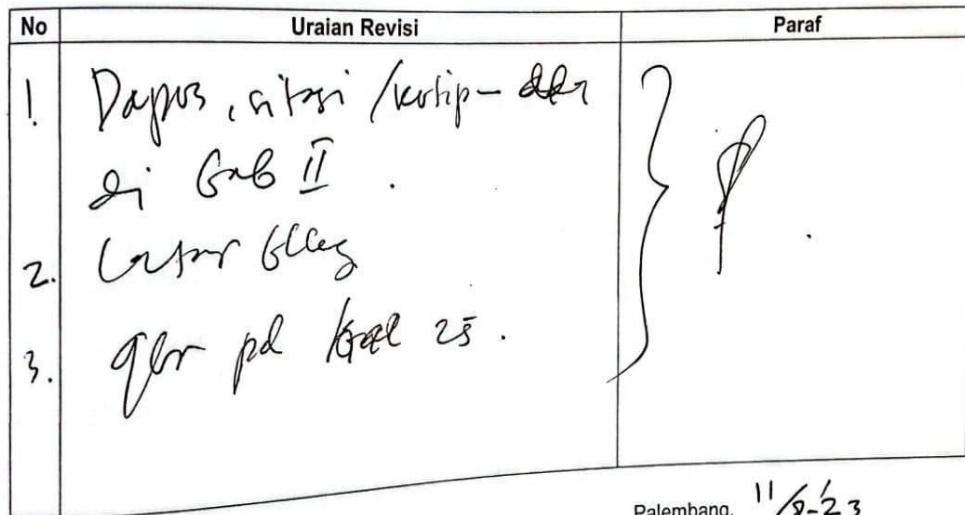 No Uraian Revisi Paraf
1. Dapus, sitasi /kutip-
di Bab II.
2. Latar Blkg
3. gbr pd hal 25.
Palembang, 11/8-'23